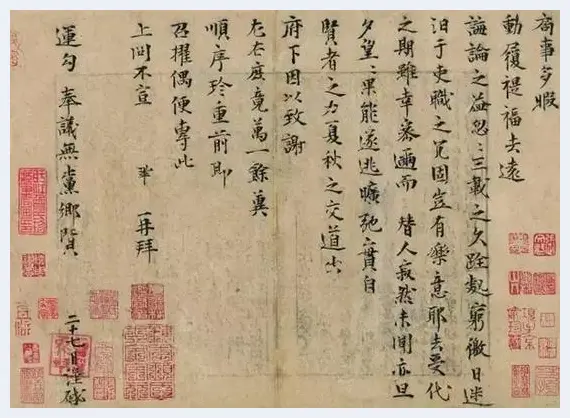 局事多暇
動履禔福去遠
誨論之益忽〻三載之久跧處窮徼日迷
汩于吏職之冗固豈有樂意耶去受代
之期雖幸密邇而替人寂然未聞亦旦
夕望〻果能遂逃曠弛實自
賢者之力夏秋之交道出
府下因以致謝
左右庶竟萬一餘冀
順序珍重前即
召擢偶便專此
上問不宣 鞏 再拜
運勾奉議無黨鄉賢
二十七日謹啓